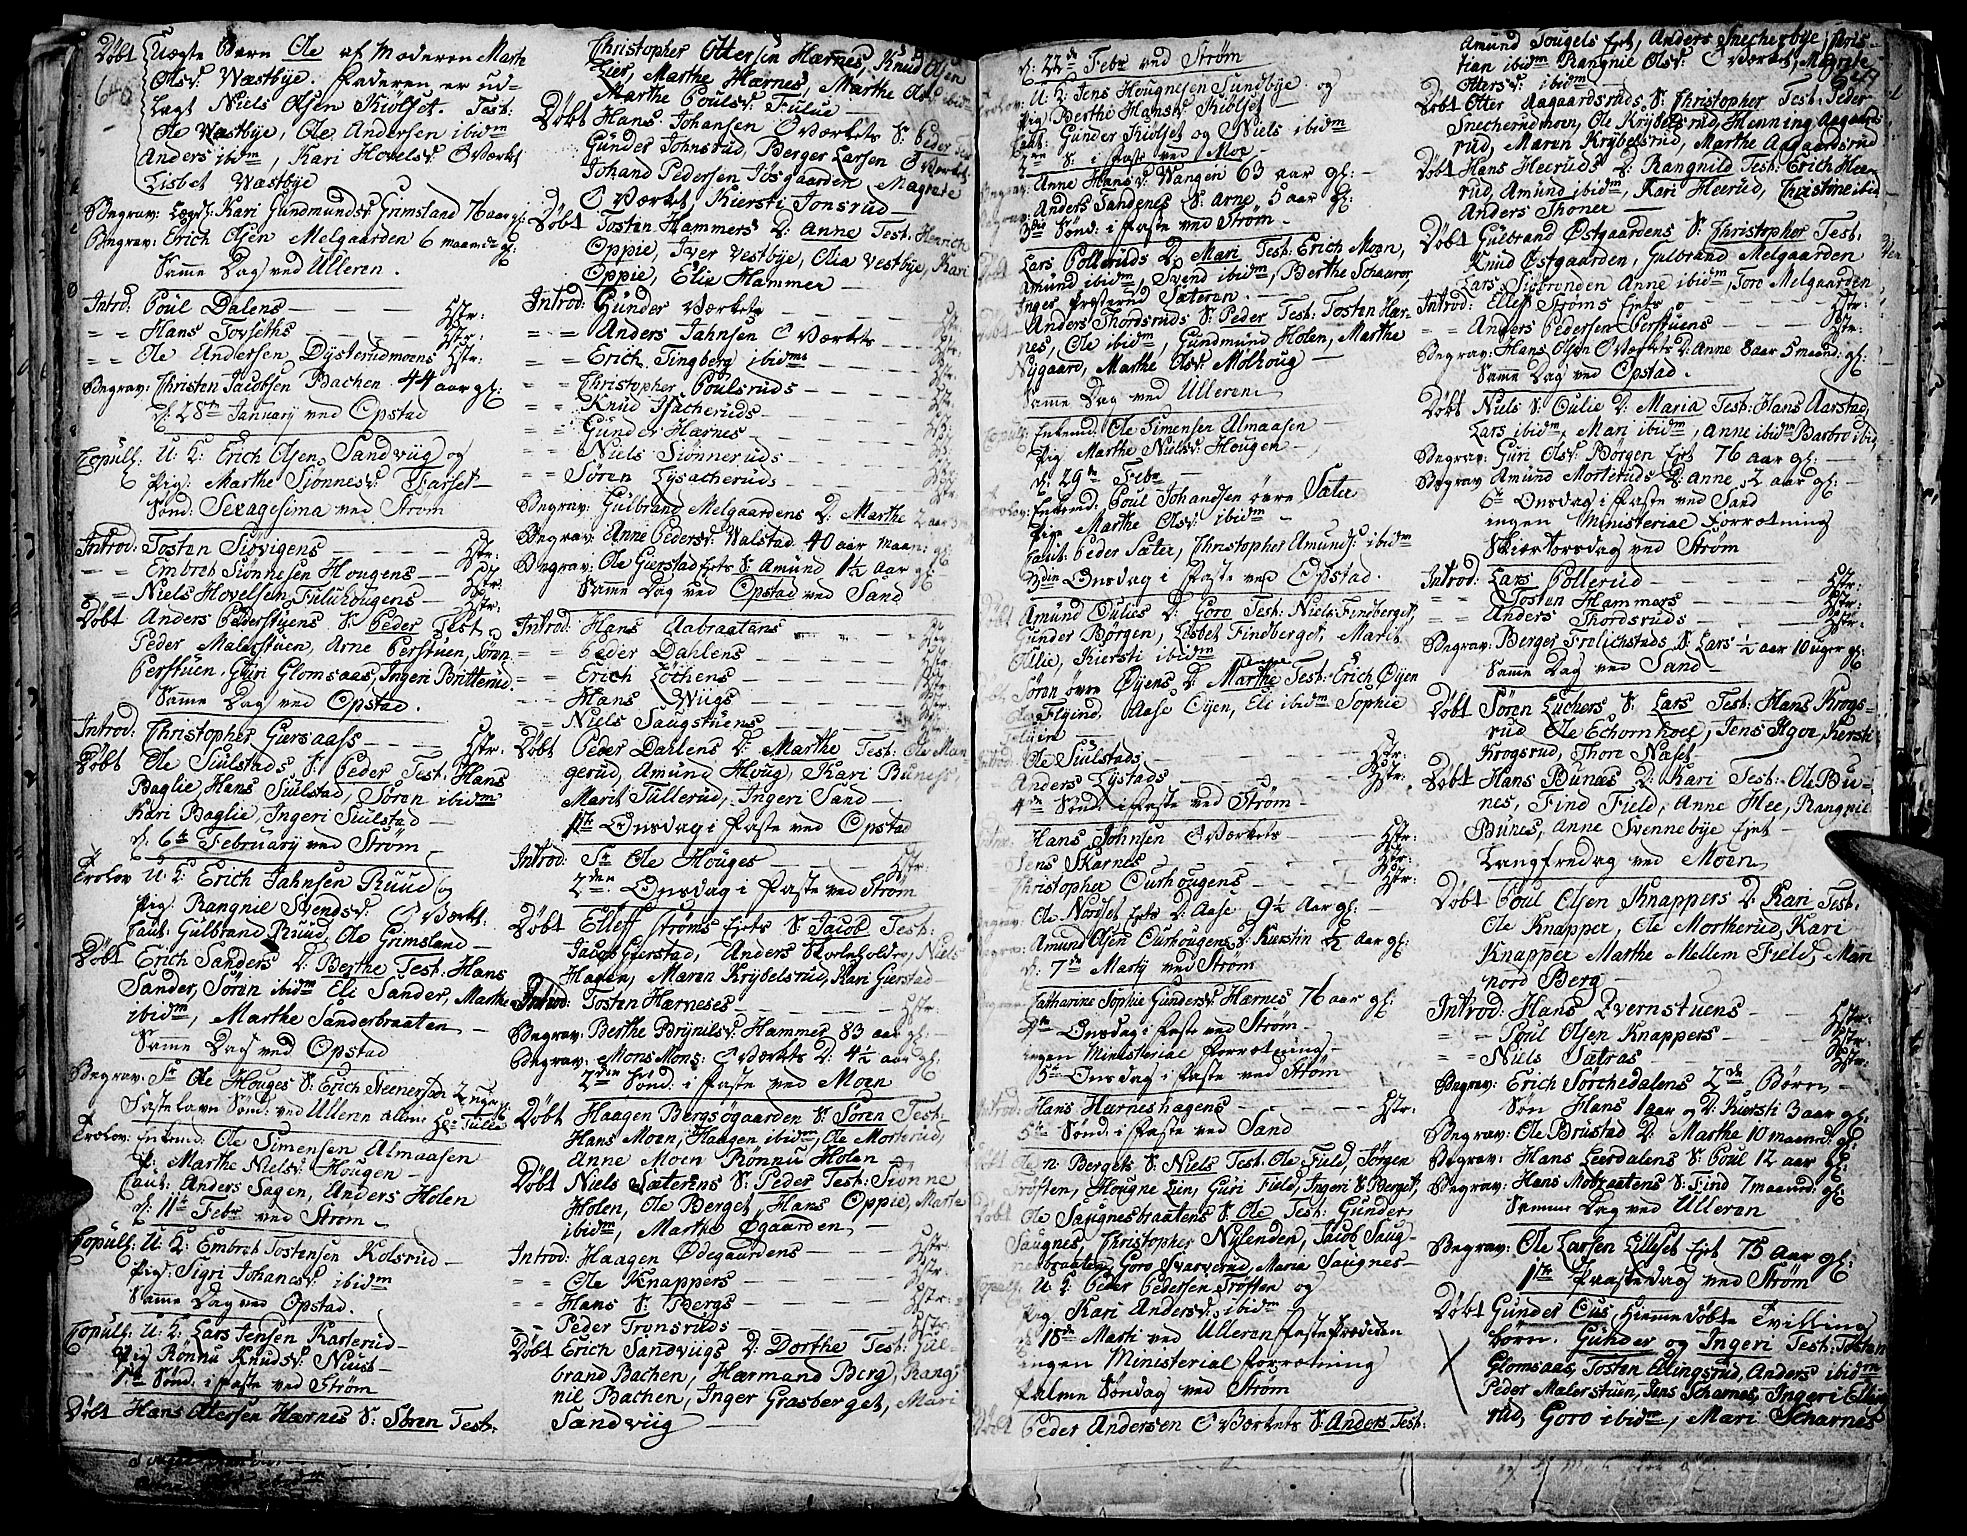 Døbt Uægte Barn Ole af Moderen Marte
Olsd. Wæstbye. Faderen er ud-
lagt Niels Olsen Kiolset. Test:
Ole Wæstbye, Ole Andersen ibidm
Anders ibidm, Kari Hovelsd: OVærket
Lisbet Wæstbye
Begrav: Lægds: Kari Gundmundsd Grimstand 76 aar gl:
Begrav: Erich Olsen Melgaarden 6 maaneder gl:
Samme Dag ved Ulleren.
Introd: Poul Dalens Hstr:
" " Hans Tovseths Hstr:
" " Ole Andersen Dysterudmoens Hstr:
Begrav: Christen Jacobsen Bachen 44 aar gl:
d: 28de January ved Opstad
Copull: U: K: Erich Olsen Sandviig og
Pig: Marthe Siønnesd: Farset
Sønd: Sexagesima ved Strøm
Introd: Tosten Siøvigens Hstr:
" " Embret Siønnesen Hougens Hstr:
" " Niels Hovelsen Fuluhougens Hstr:
Døbt Anders Pederstuens S: Peder Test
Peder Malerstuen, Arne Perstuen, Søren
Perstuen, Guri Glomsaas, Ingeri Britterud.
Samme Dag ved Opstad.
Introd: Christopher Gursaass Hstr:
Døbt Ole Siulstads S: Peder Test: Hans
Baglie, Hans Suilstad, Søren ibidm
Kari Baglie, Ingeri Suilstad
d. 6te February ved Strøm
Trolov U: K: Erich Jahnsen Ruud og
Pig: Rangnil Svendsd: OVærket
Caut: Gulbrand Ruud, Ole Grimsland
Døbt Erich Sanders D: Berthe Test: Hans
Sander, Søren ibidm Eli Sander, Marthe
ibidm, Marthe Sanderbraaten
Samme Dag ved Opstad
Begrav: Sr Ole Houges S: Erich Steenersen 2 uger gl:
Fastelavn Sønd: ved Ulleren
Trolov: Enkemd: Ole Simensen Almaasen
P: Marthe Nielsd: Hougen
Caut: Anders Sagen, Anders Holen
d: 11te Febr ved Strøm
Copull: U: K: Embret Tostensen Kolsrud
Pig: Sigri Johanesd: ibidm
Samme Dag ved Opstad.
Copull: U: K: Lars Jensen Karterud
Pig Rønnu Knudsd: Nust
1ste Sønd: i Faste ved Strøm
Døbt Hans Ottersen Hærnes S: Søren Test:
Christopher Ottersen Hærnes, Knud Olsen
Lier, Marthe Hærnes, Marthe Olsd ibidm
Marthe Poulsd: Fulue
Døbt Hans Johansen OVærkets S: Peder Test
Gunder Johnsrud, Berger Larsen OVærket
Johand Pedersen Josgaarden, Magrete
OVærket, Kiersti Jonsrud
Døbt Tosten Hammers D: Anne Test: Henrich
Oppie, Iver Vestbye, Olia Vestbye, Kari
Oppie, Elie Hammer
Introd: Gunder Værkets Hstr:
" " Anders Jahnsen OVærkets Hstr:
" " Erich Tingberg ibidms Hstr:
" " Christopher Poulsruds Hstr:
" " Knud Isacheruds Hstr:
" " Gunder Hærnes Hstr:
" " Niels Siønneruds Hstr:
" " Søren Lysacheruds Hstr:
Begrav: Gulbrand Melgaardens D: Marthe 2 aar
Begrav: Anne Pedersd: Walstad 40 aar maan: gl:
Begrav: Ole Gierstad Eiets S: Amund 1½ aar gl:
Samme Dag ved Opstad ved Sand
Introd: Hans Aabraatens Hstr:
" " Peder Dahlens Hstr:
" " Erich Løchens Hstr:
" " Hans Wiigs Hstr:
" " Niels Saugstuens Hstr:
Døbt Peder Dahlens D: Marthe Test: Ole Man-
gerud, Amund Houg, Kari Buness,
Marit Tullerud, Ingeri Sand
1ste Onsdag i Faste ved Opstad
Introd: Sr Ole Houges Hstr:
2den Onsdag i Faste ved Strøm
Døbt Elleff Strøms Eiets S: Jacob Test:
Jacob Gierstad, Anders Skoleholder, Niels
Hagen, Maren Krybelsrud, Kari Gierstad
Introd: Tosten Hærneses Hstr:
Begrav: Berthe Brynilsd: Hammer 83 aar gl:
Begrav: Mons Mons: OVærkets D: 4½ aar gl:
2den Sønd: i Faste ved Moen
Døbt Haagen Bergsøgaarden S: Søren Test:
Hans Moen, Haagen ibidm, Ole Morterud,
Anne Moen Rønnu Holen
Døbt Niels Sæterens S: Peder Test: Siønne
Holen, Ole Berget, Hans Oppie, Marte
ibidm, Marthe Øgaarden
Introd: Haagen Ødegaardens Hstr:
" " Ole Knappers Hstr:
" " Hans S: Bergs Hstr:
" " Peder Tronsruds Hstr:
Døbt Erich Sandvugs D: Dorthe Test: Gul-
brand Bachen, Hærmand Berg, Rang-
nil Bachen, Inger Grasberget, Mari
Sandvug
d: 22de Febr ved Strøm
Trolov: U: K: Jens Hougnesen Sundbye og
Pig Berthe Hansd: Kiolset
Caut: Gunder Kiolset og Niels ibidm
2den S: i Faste ved Moe
Begrav: Anne Hansd: Wangen 63 aar gl:
Begrav: Anders Sandenes S: Arne, 5 aar gl:
3die Sønd: i Faste ved Strøm
Døbt Lars Polleruds D: Mari Test: Erich Moen,
Amund ibidm, Svend ibidm, Berthe Schaaror,
Inger Sæteren
Døbt Anders Thordsruds S: Peder Test: Tosten Hær-
nes, Ole ibidm, Gundmund Holen, Marthe
Nygaard, Marthe Olsd: Molhoug
Samme Dag ved Ulleren
Copull: Enkemd: Ole Simensen Almaasen
Pig Marthe Nielsd: Hougen
d: 29de Febr
Trolov: Enkemd: Poul Johandsen øvre Sæter
Pige Marthe Olsd: ibidm
Caut: Peder Sæter, Christopher Amunds: ibidm
3dien Onsdag i Faste ved Opstad.
Døbt Amund Oulies D: Goro Test: Niels Findberget,
Gunder Borgen, Lisbet Findberget, Marit
Ollie, Kiersti ibidm
Døbt Søren øvre Øyens D: Marthe Test: Erich Øyen
Ole Flyind, Aase Oyen, Eli ibidm Sophie
Introd: Ole Siulstads Hstr:
Anders Lystads Hstr:
4de Sønd: i Faste ved Strøm
Introd: Hans Johnsen OVærkets Hstr:
Jens Skarnes Hstr:
Christopher Ourhougens Hstr:
Begrav: Ole Nordset Eiets D: Aase 9½ Aar gl:
Begrav: Amund Olsen Ourhougens D: Kierstin ½ Aar gl:
d: 7de Marty ved Strøm
Begrav: Catharine Sophie Gundersd: Hærnes 76 aar gl:
4de Onsdag i Faste ved Strøm
ingen Ministerial Forretning
5te Onsdag i Faste ved Strøm
Introd: Hans Hærneshagens Hstr:
5te Sønd: i Faste ved Sand
Døbt Ole n: Bergets S: Niels Test: Ole Field, Jørgen
Trøften, Hougne Lien, Guri Field, Ingeri S: Berget,
Døbt Ole Saugnesbraatens S: Ole Test: Gunder
Saugnes, Christopher Nylenden, Jacob Saug-
nesbraaten, Goro Svarverud, Maria Saugnes
Copull: U: K: Peder Pedersen Trøften og
Pig Kari Andersd: ibidm
d: 18de Marti ved Ulleren Fasteprædiken
ingen Ministerial Forretning
Palme Søndag ved Strøm
Døbt Peder Andersen OVærkets S: Anders Test:
Amund Tougels Eiet, Anders Snecherbye, Chris-
tian ibidm Rangnie Olsd: OVærket, Magrete
Ottersd: ibidm
Døbt Otter Aagaardsruds S: Christopher Test: Peder
Snecherudmoen, Ole Krybelsrud, Henning Aagaards
rud, Maren Krybelsrud, Marthe Aagaardsrud
Døbt Hans Heeruds D: Rangnild Test: Erich Hee-
rud, Amund ibidm, Kari Heerud, Christine ibid
Anders Thoner
Døbt Gulbrand Østgaardens S: Christopher Test:
Knud Østgaarden, Gulbrand Melgaarden
Lars Siøbronden Anne ibidm, Toro Melgaarden
Introd: Elleff Strøms Eiets Hstr:
" " Anders Pedersen Perstuens Hstr:
Begrav: Hans Olsen OVærkets D: Anne 8 aar 5 maand: gl:
Samme Dag ved Opstad.
Døbt Niels S: Oulie D: Maria Test: Hans Aarstad,
Lars ibidm, Mari ibidm, Anne ibidm Barbro ibid
Begrav: Guri Olsd: Borgen Eiet 76 aar gl:
Begrav: Amund Morteruds D: Anne 2 aar gl:
6te Onsdag i Faste ved Sand
ingen Ministerial Forretning
Skiertorsdag ved Strøm
Introd: Lars Pollerud Hstr:
" " Tosten Hammers Hstr:
" " Anders Thordsruds Hstr:
Begrav: Berger Frelichstads S: Lars ½ aar 10 uger gl:
Samme Dag ved Sand
Døbt Søren Luchers S: Lars Test: Hans Krogs-
rud Ole Echornhoel, Jens Hgoe, Kersti
Krogsrud, Thore Næset
Døbt Hans Bunæs D: Kari Test: Ole Bu-
nes, Find Field, Anne Hee, Rangnil
Bunes, Anne Svennebye Eiet
Langfredag ved Moen
Døbt Poul Olsen Knappers D: Kari Test:
Ole Knapper, Ole Mortherud, Kari
Knapper Marthe Mellem Field, Man
nord Berg
Introd: Hans Qvernstuens Hstr:
" " Poul Olsen Knappers Hstr:
" " Niels Sætras Hstr:
Begrav: Erich Torchedalens 2de Børn
Søn Hans 1 aar og D: Kiersti 3 aar gl:
Begrav: Ole Brustad D: Marthe 10 maand: gl:
Begrav: Hans Leerdalens S: Poul 12 aar gl:
Begrav: Hans Mobraatens S: Find 7 maand: gl:
Samme Dag ved Ulleren
Begrav: Ole Larsen Lilleset Eiet 75 aar gl:
1ste Paaskedag ved Strøm
Døbt Gunder Ous hiemmedøbte Tvilling
børn: Gunder og Ingeri Test: Tosten
Glomsaas, Tosten Ellingsrud, Anders ibidm
Peder Malerstuen, Jens Scharnes, Ingeri Elling
rud, Goro ibidm, Mari Scharnes